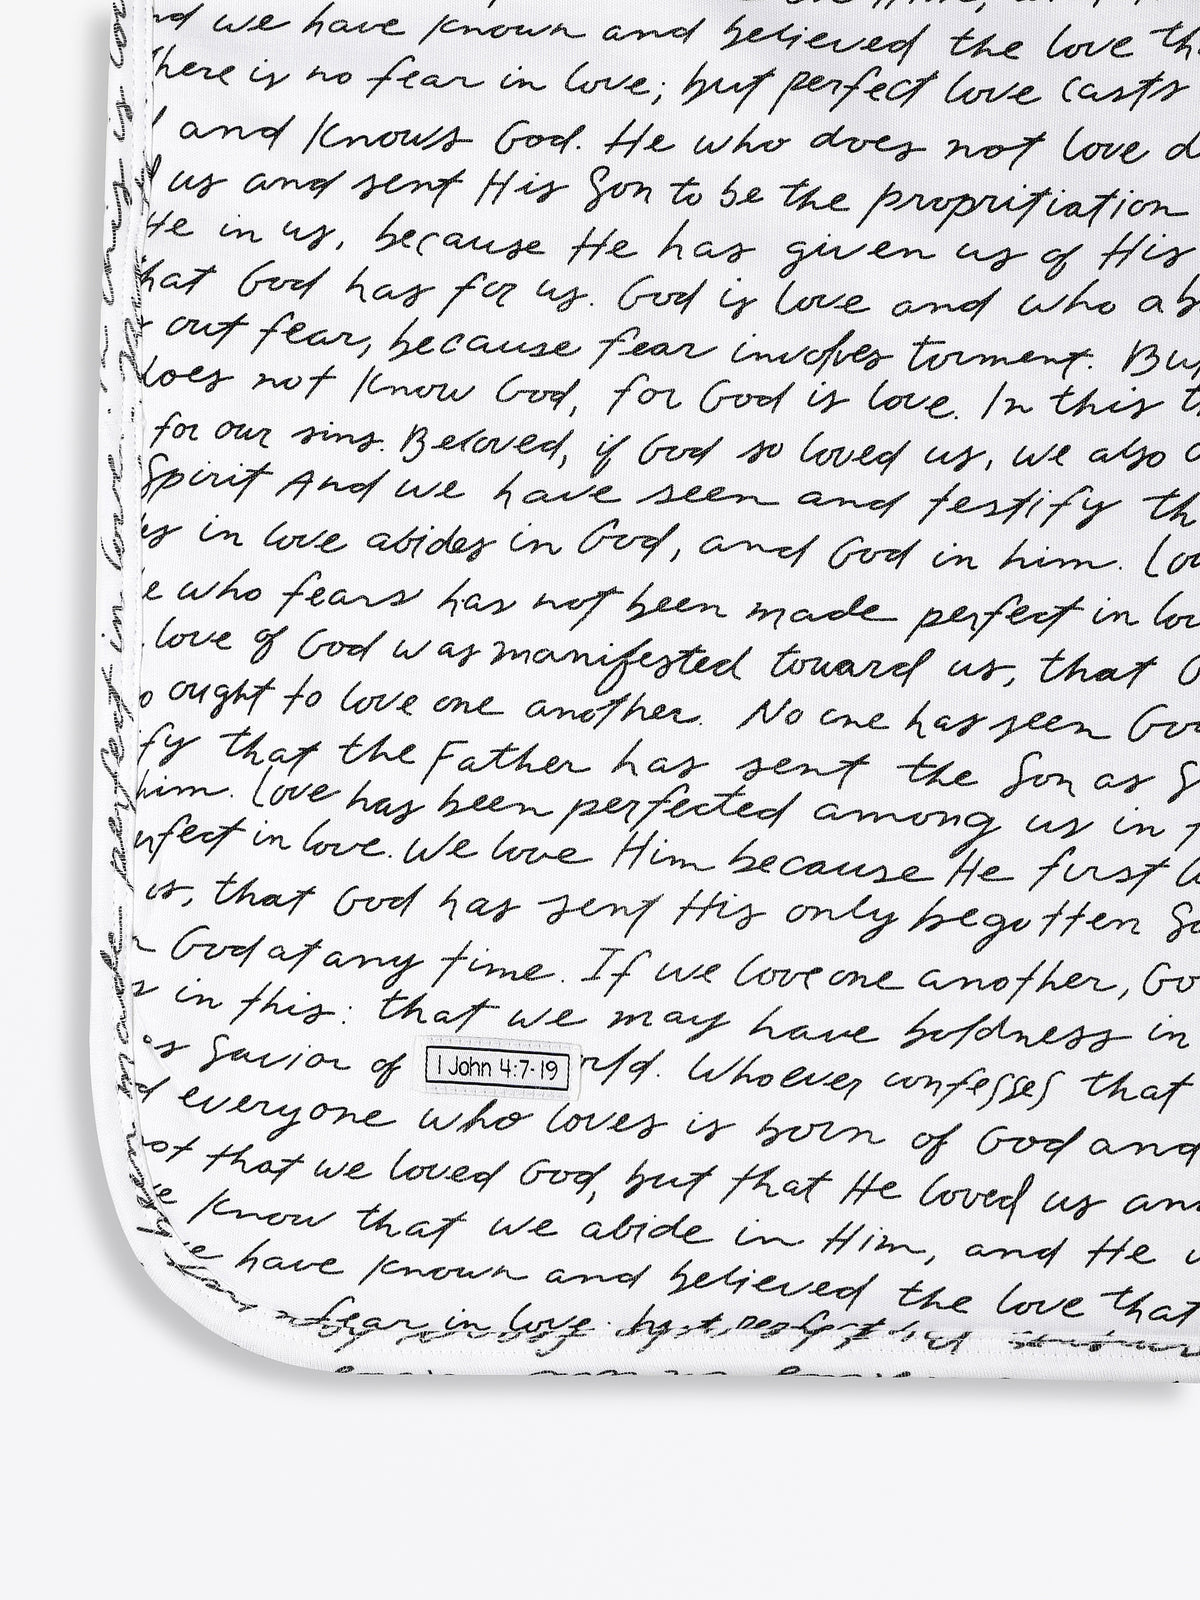 we have known and believed the love
There is no fear in love; but perfect love casts
and knows God. He who does not love
us and sent His Son to be the propritiation
He in us, because He has given us of His
that God has for us. God is love and who ab
out fear, because fear involves torment. But
does not know God, for God is love. In this
for our sins. Beloved, if God so loved us, we also
Spirit And we have seen and testify
in love abides in God, and God in him. Lov
who fears has not been made perfect in lov
love of God was manifested toward us, that
ought to love one another. No one has seen God
fy that the Father has sent the Son as S
him. Love has been perfected among us in
rfect in love. We love Him because He first
us, that God has sent His only begotten So
God at any time. If we love one another, Go
in this: that we may have boldness in
as Savior of rld. Whoever confesses that
1 John 4:7-19
everyone who loves is born of God and
not that we loved God, but that He loved us and
we know that we abide in Him, and He
we have known and believed the love that
fear in love. but perfect
been made perfect in love.